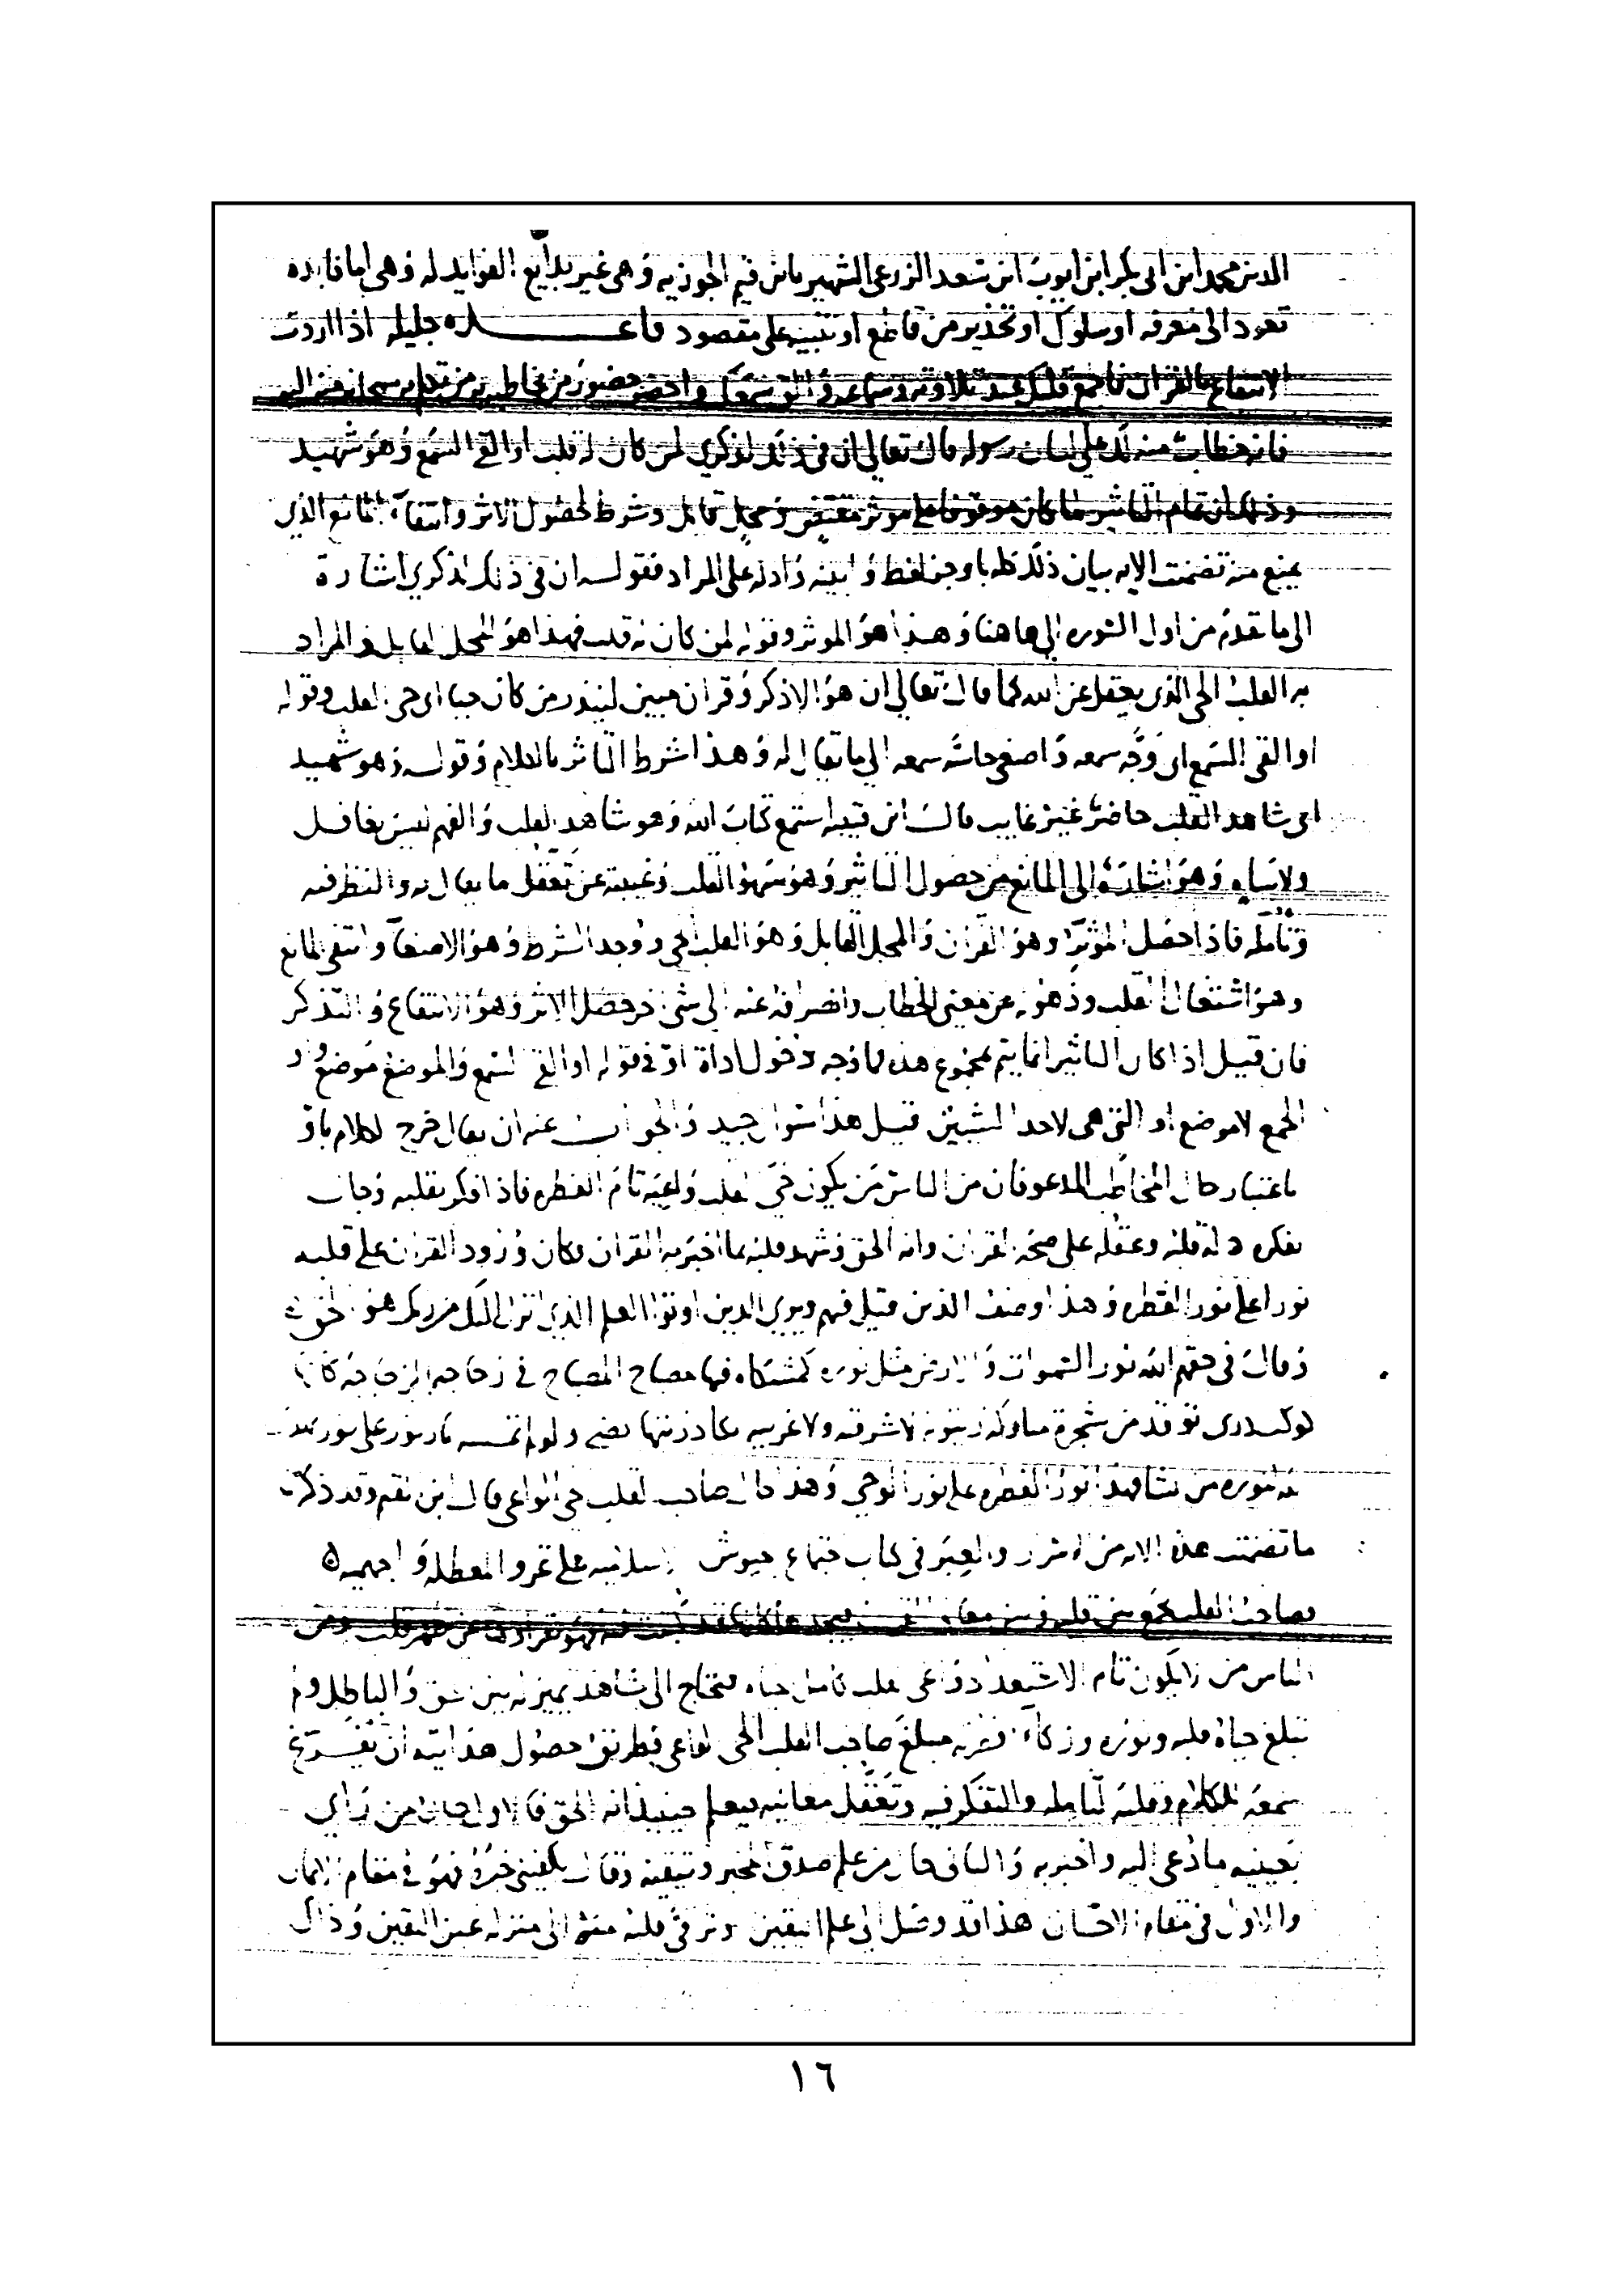 الدين محمد ابن ابى بكر ابن ايوب ابن سعد الزرعى الشهير بابن قيم الجوزيه وهى غير بدايع الفوايد له وهى اما فايده
تعود الى معرفه او سلوك او تحذير من قاطع او تنبيه على مقصود قاعـــــده جليله اذا اردت
الانتفاع بالقران فاجمع قلبك عند تلاوته وسماعه والق سمعك واحضر حضور من يخاطبه به من تكلم به سبحانه منه اليه
فانه خطاب منه لك على لسان رسوله قال تعالى ان فى ذلك لذكرى لمن كان له قلب او القى السمع وهو شهيد
وذلك ان تمام التاثير لما كان موقوفا على موثر مقتض ومحل قابل وشرط لحصول الاثر وانتفاء المانع الذى
يمنع منه تضمنت الايه بيان ذلك كله باوجز لفظ وابينه وادله على المراد فقوله ان فى ذلك لذكرى اشارة
الى ما تقدم من اول السوره الى ها هنا وهذا هو الموثر وقوله لمن كان له قلب فهذا هو المحل القابل والمراد
به القلب الحى الذى يعقل عن الله كما قال تعالى ان هو الا ذكر وقران مبين لينذر من كان حيا اى حى القلب وقوله
او القى السمع اى وجه سمعه واصغى حاسة سمعه الى ما يقال له وهذا شرط التاثر بالكلام وقوله وهو شهيد
اى شاهد القلب حاضر غير غايب قال ابن قتيبه استمع كتاب الله وهو شاهد القلب والفهم ليس بغافل
ولا ساه وهو اشارة الى المانع من حصول التاثير وهو سهو القلب وغيبته عن تعقل ما يقال له والنظر فيه
وتامله فاذا حصل الموثر وهو القران والمحل القابل وهو القلب الحى ووجد الشرط وهو الاصغاء وانتفى المانع
وهو اشتغال القلب وذهوله عن معنى الخطاب وانصرافه عنه الى شى اخر حصل الاثر وهو الانتفاع والتذكر
فان قيل اذا كان التاثير انما يتم بمجموع هذه فما وجه دخول اداة او فى قوله او القى السمع والموضع موضع واو
الجمع لا موضع او التى هى لاحد الشيين قيل هذا سوال جيد والجواب عنه ان يقال خرج الكلام باو
باعتبار حال المخاطب المدعو فان من الناس من يكون حى القلب واعيه تام الفطره فاذا فكر بقلبه وجال
بفكره دله قلبه وعقله على صحة القران وانه الحق وشهد قلبه بما اخبر به القران فكان ورود القران على قلبه
نورا على نور الفطره وهذا وصف الذين قيل فيهم ويرى الذين اوتوا العلم الذى انزل اليك من ربك هو الحق
وقال فى حقهم الله نور السموات والارض مثل نوره كمشكاه فيها مصباح المصباح فى زجاجه الزجاجه كانها
كوكب درى توقد من شجرة مباركه زيتونه لا شرقيه ولا غربيه يكاد زيتها يضى ولو لم تمسسه نار نور على نور يهدى
الله لنوره من يشا فهذا نور الفطره على نور الوحى وهذا حال صاحب القلب الحى الواعى قال ابن القيم وقد ذكرت
ما تضمنت هذه الايه من الاسرار والعبر فى كتاب اجتماع جيوش الاسلاميه على غزو المعطله والجهميه
فصاحب القلب يجمع بين قلبه وبين معانى القران فيجدها كانها قد كتبت فيه فهو يقراها عن ظهر قلب ومن
الناس من لا يكون تام الاستعداد واعى القلب كامل حياه فيحتاج الى شاهد يميز له بين الحق والباطل ولم
تبلغ حياة قلبه ونوره وزكاء فطرته مبلغ صاحب القلب الحى الواعى فطريق حصول هدايته ان يفرغ
سمعه للكلام وقلبه لتامله والتفكر فيه وتعقل معانيه فيعلم حينيذ انه الحق فالاول حال من راى
بعينيه ما دعى اليه واخبر به والثانى حال من علم صدق المخبر وتيقنه وقال يكفينى خبره فهو فى مقام الايمان
والاول فى مقام الاحسان هذا قد وصل الى علم اليقين وترقى قلبه منه الى منزله عين اليقين وذاك
١٦